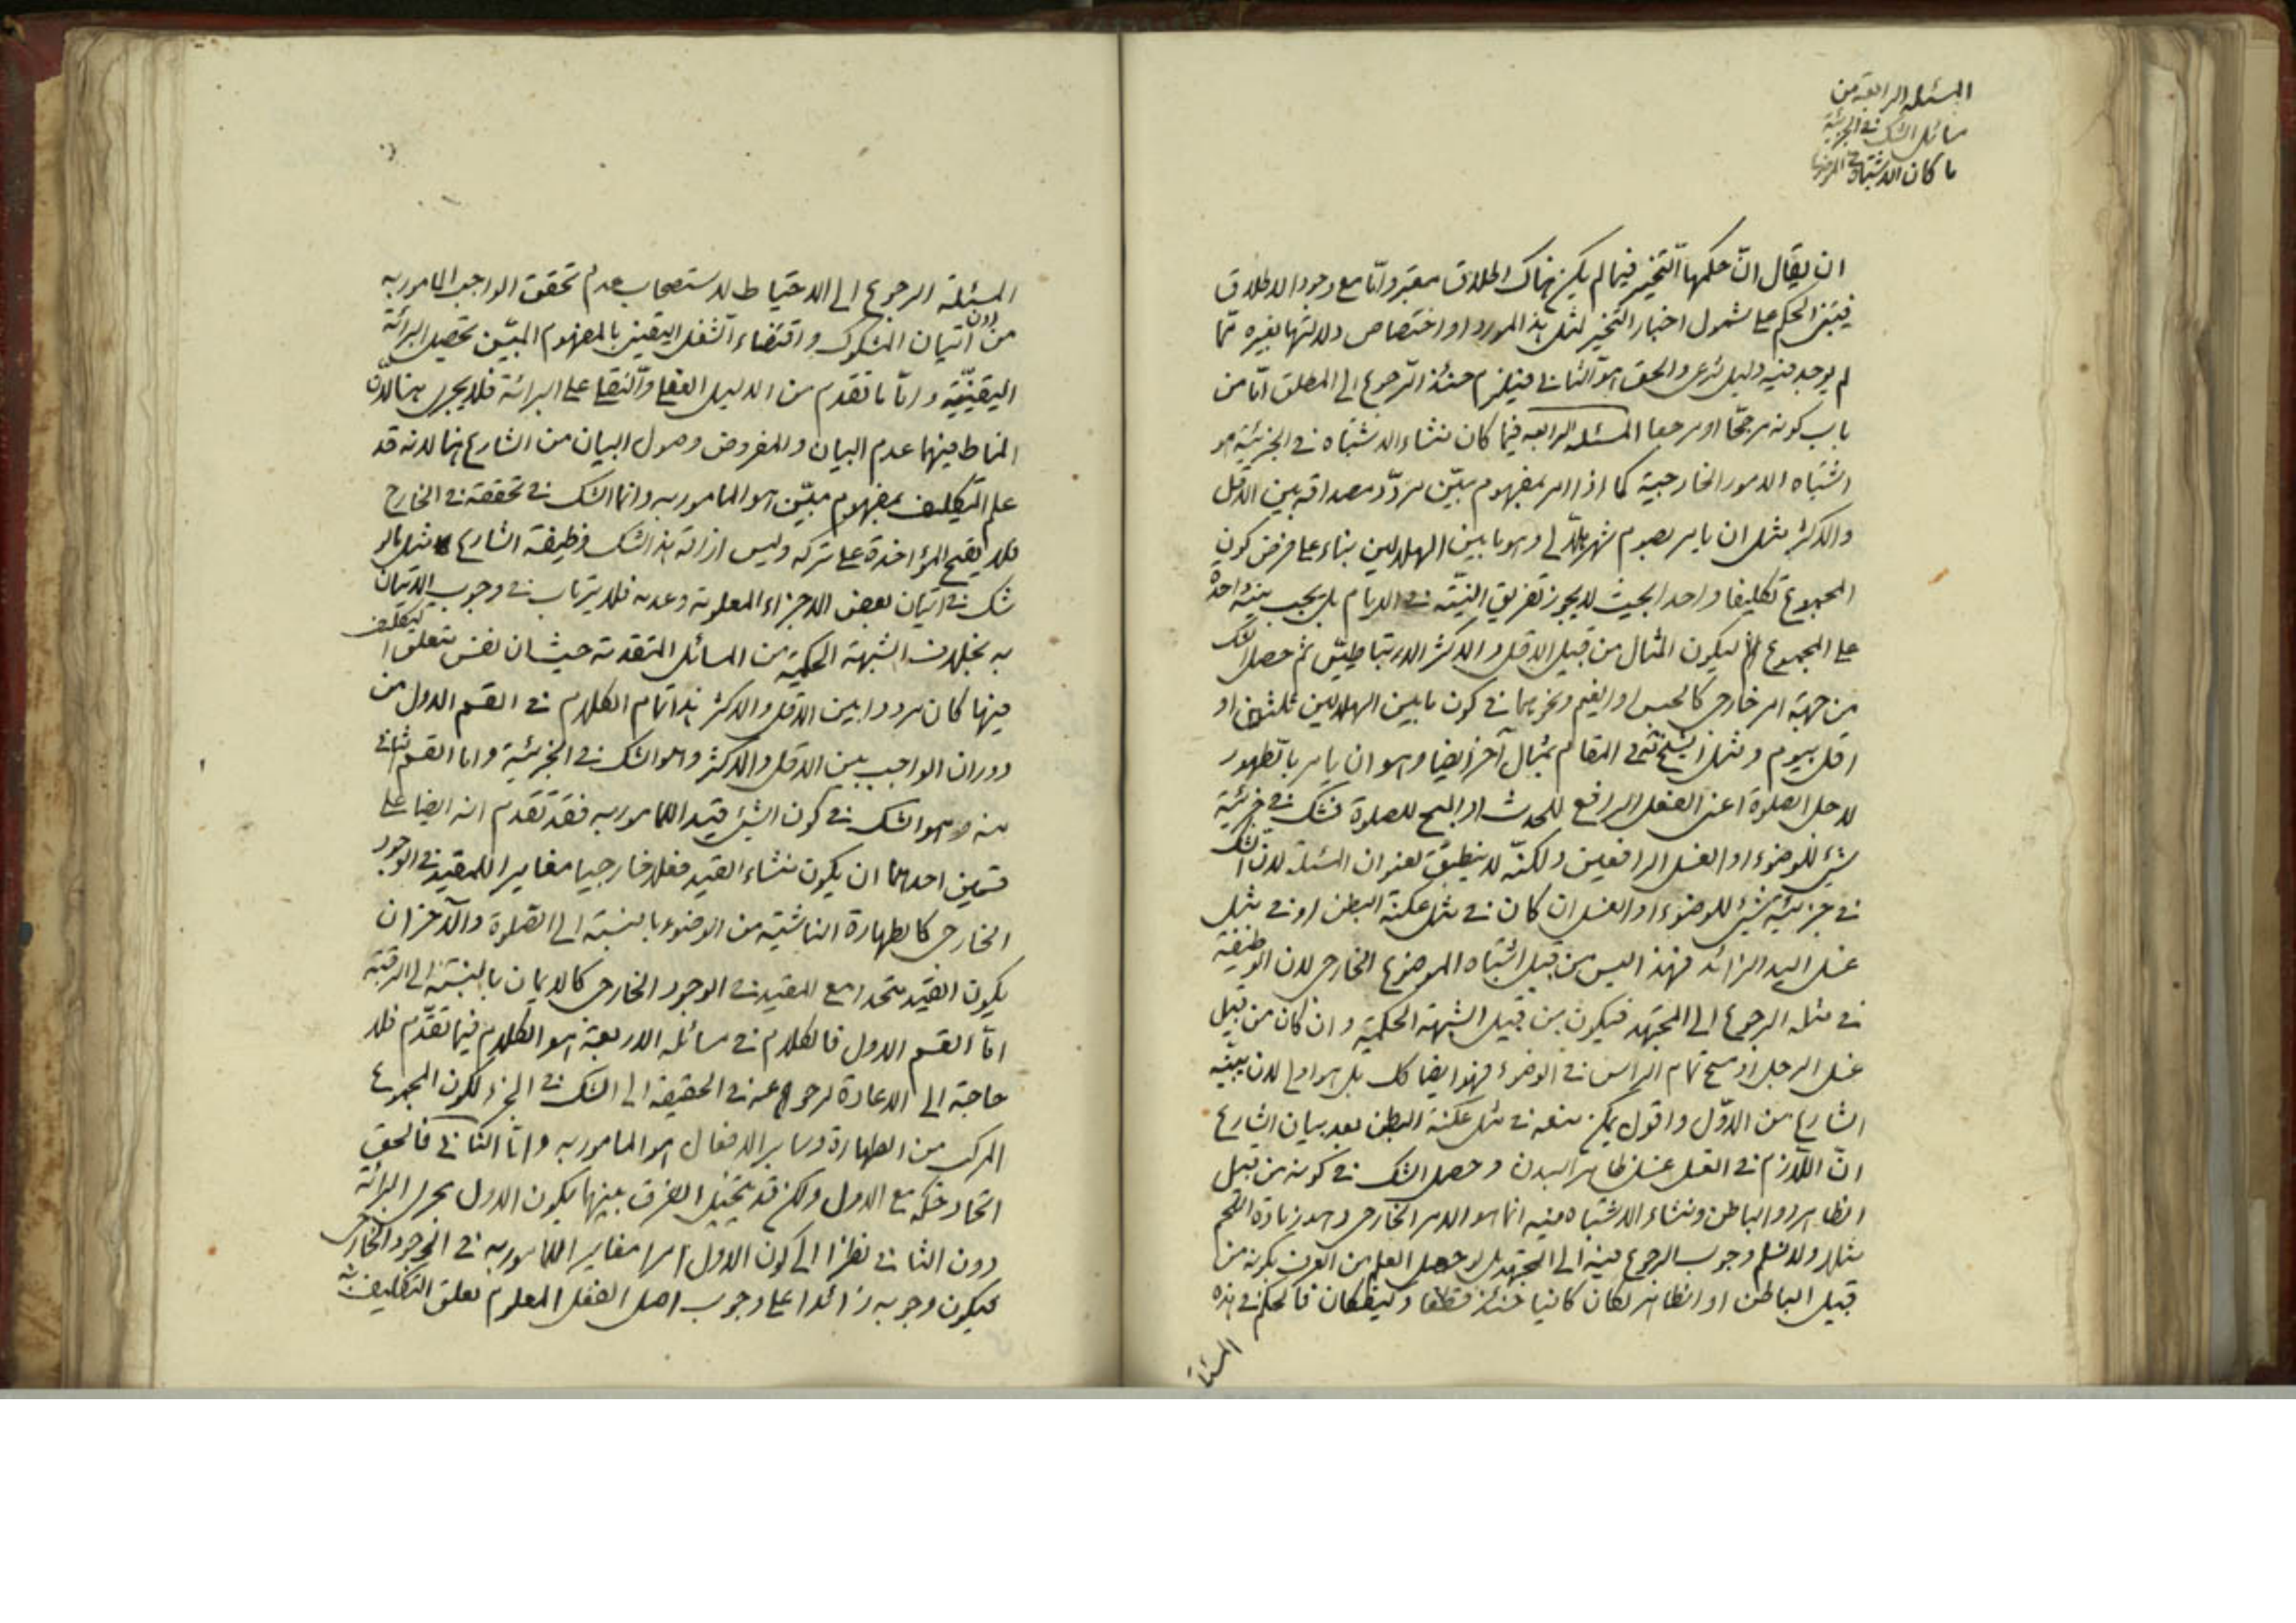 المسئلة الرابعة من
مسائل الشك في الجزئية
ما كان الاشتباه في الموضوع
ان يقال ان حكمها التخيير فيما لم يكن هناك اطلاق معتبر واما مع وجود الاطلاق
فيبتنى الحكم على شمول اخبار التخيير لمثل هذا المورد او اختصاص دلالتها بغيره مما
لم يوجد فيه دليل شرعى والحق هو الثانى فيلزم حينئذ الرجوع الى المطلق اما من
باب كونه مرجحا او مرجعا المسئلة الرابعه فيما كان منشاء الاشتباه فى الجزئية هو
اشتباه الامور الخارجية كما اذا امر بمفهوم مبين تردد مصداقه بين الاقل
والاكثر مثل ان يامر بصوم شهر هلالى وهو ما بين الهلالين بناء على فرض كون
المجموع تكليفا واحدا بحيث لا يجوز تفريق النية فى الايام بل يجب نية واحدة
على المجموع ليكون المثال من قبيل الاقل والاكثر الارتباطيين ثم حصل الشك
من جهة امر خارجى كالحبس او الغيم ونحوهما فى كون ما بين الهلالين ثلثين او
اقل بيوم ومثل الشيخ فى المقام بمثال آخر ايضا وهو ان يامر بالطهور
لاجل الصلوة اعنى الفعل الرافع للحدث او المبيح للصلوة فشك فى جزئية
شئ للوضوء او الغسل الرافعين ولكنه لا ينطبق لعنوان المسئلة لان الشك
فى جزئية شئ للوضوء او الغسل ان كان فى مثل عكنة البطن او فى مثل
غسل اليد الزائد فهذا ليس من قبيل اشتباه الموضوع الخارجى لان الوظيفة
فى مثله الرجوع الى المجتهد فيكون من قبيل الشبهة الحكمية وان كان من قبيل
غسل الرجل او مسح تمام الراس فى الوضوء فهو ايضا كك بل هو اولى لان بينه
الشارع من الاول واقول يمكن منعه فى مثل عكنة البطن بعد بيان الشارع
ان اللازم فى الغسل غسل ظاهر البدن وحصل الشك فى كونه من قبيل
الظاهر او الباطن ومنشاء الاشتباه فيه انما هو الامر الخارجى وهو زيادة اللحم
مثلا ولا نسلم وجوب الرجوع فيه الى المجتهد بل لو حصل العلم من العرف بكونه من
قبيل الباطن او الظاهر لكان كافيا حينئذ قطعا وكيف كان فالحكم فى هذه
المسئلة
المسئلة الرجوع الى الاحتياط لاستصحاب عدم تحقق الواجب المامور به
من دون اتيان المشكوك واقتضاء الشغل اليقينى بالمفهوم المبين تحصيل البرائة
اليقينية واما ما تقدم من الدليل العقلى والنقلى على البرائة فلا يجرى هنا لان
المناط فيهما عدم البيان والمفروض وصول البيان من الشارع هنا لانه قد
علم التكليف بمفهوم مبين هو المامور به وانما الشك فى تحققه فى الخارج
فلا يقبح المؤاخذة على تركه وليس ازالة هذا الشك وظيفة الشارع مثل ما لو
شك فى اتيان بعض الاجزاء المعلومة وعدمه فلا يرتاب فى وجوب الاتيان
به بخلاف الشبهة الحكمية من المسائل المتقدمة حيث ان نفس متعلق التكليف
فيها كان مرددا بين الاقل والاكثر هذا تمام الكلام فى القسم الاول من
دوران الواجب بين الاقل والاكثر وهو الشك فى الجزئية واما القسم الثانى
منه وهو الشك فى كون الشئ قيدا للمامور به فقد تقدم انه ايضا على
قسمين احدهما ان يكون منشاء القيد فعلا خارجيا مغايرا للمقيد فى الوجود
الخارجى كالطهارة الناشئة من الوضوء بالنسبة الى الصلوة والآخر ان
يكون القيد متحدا مع المقيد فى الوجود الخارجى كالايمان بالنسبة الى الرقبة
اما القسم الاول فالكلام فى مسائله الاربعة هو الكلام فيما تقدم فلا
حاجة الى الاعادة لرجوعه فى الحقيقة الى الشك فى الجزء لكون المجموع
المركب من الطهارة وساير الافعال هو المامور به واما الثانى فالحق
اتحاد حكمه مع الاول ولكن قد يتخيل الفرق بينهما بكون الاول مجرى البرائة
دون الثانى نظرا الى كون الاول امرا مغايرا للمامور به فى الوجود الخارجى
فيكون وجوبه زائدا على وجوب اصل الفعل المعلوم تعلق التكليف به